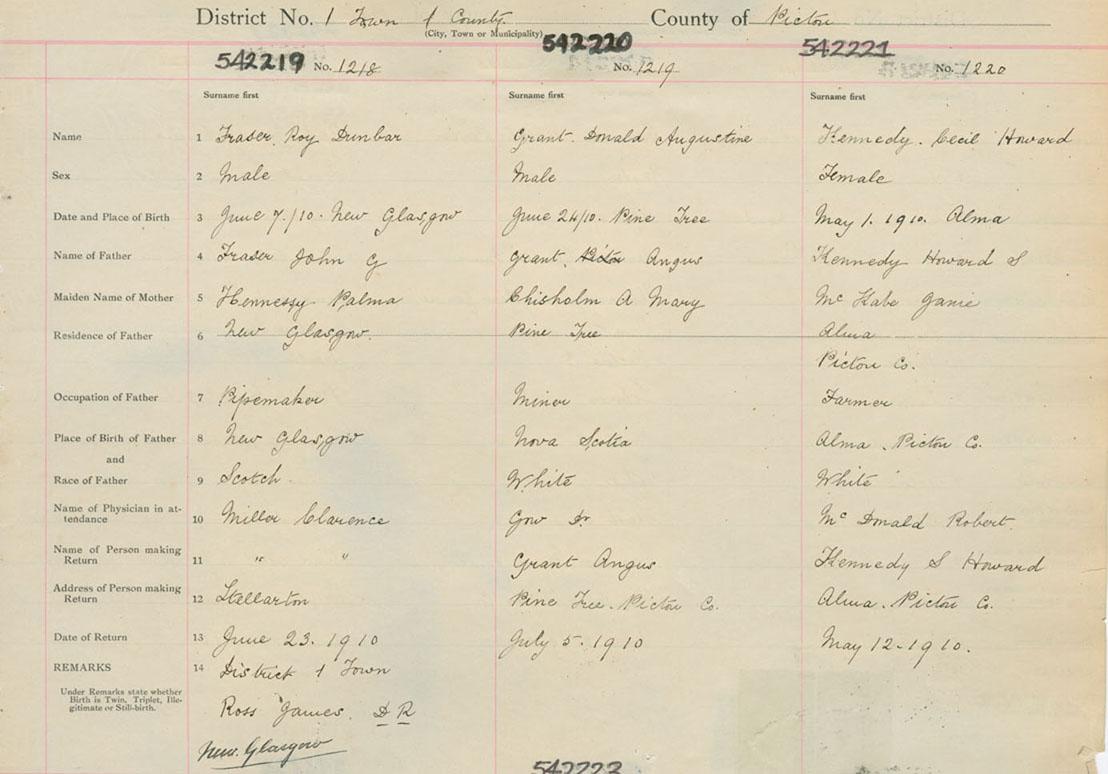 District No. 1 Town & County County of Pictou
(City, Town or Municipality)
542219 No. 1218 542220 No. 1219 542221 No. 1220
Surname first Surname first Surname first
Name 1 Fraser, Roy Dunbar Grant. Donald Augustine Kennedy. Cecil Howard
Sex 2 Male Male Female
Date and Place of Birth 3 June 7./10. New Glasgow June 24/10. Pine Tree May 1. 1910. Alma
Name of Father 4 Fraser John G Grant. Pictou Angus Kennedy Howard S
Maiden Name of Mother 5 Hennessy Palma Chisholm A Mary Mc Kabe Janie
Residence of Father 6 New Glasgow. Pine Tree Alma
Pictou Co.
Occupation of Father 7 Pipemaker Miner Farmer
Place of Birth of Father 8 New Glasgow Nova Scotia Alma. Pictou Co.
and
Race of Father 9 Scotch White White
Name of Physician in at-
tendance 10 Miller Clarence Gow Dr Mc Donald Robert.
Name of Person making
Return 11 " " Grant Angus Kennedy S Howard
Address of Person making
Return 12 Stellarton Pine Tree. Pictou Co. Alma. Pictou Co.
Date of Return 13 June 23. 1910 July 5. 1910 May 12-1910.
REMARKS 14 District 1 Town
Under Remarks state whether
Birth is Twin, Triplet, Ille-
gitimate or Still-birth.
Ross James. D R
New. Glasgow
542223